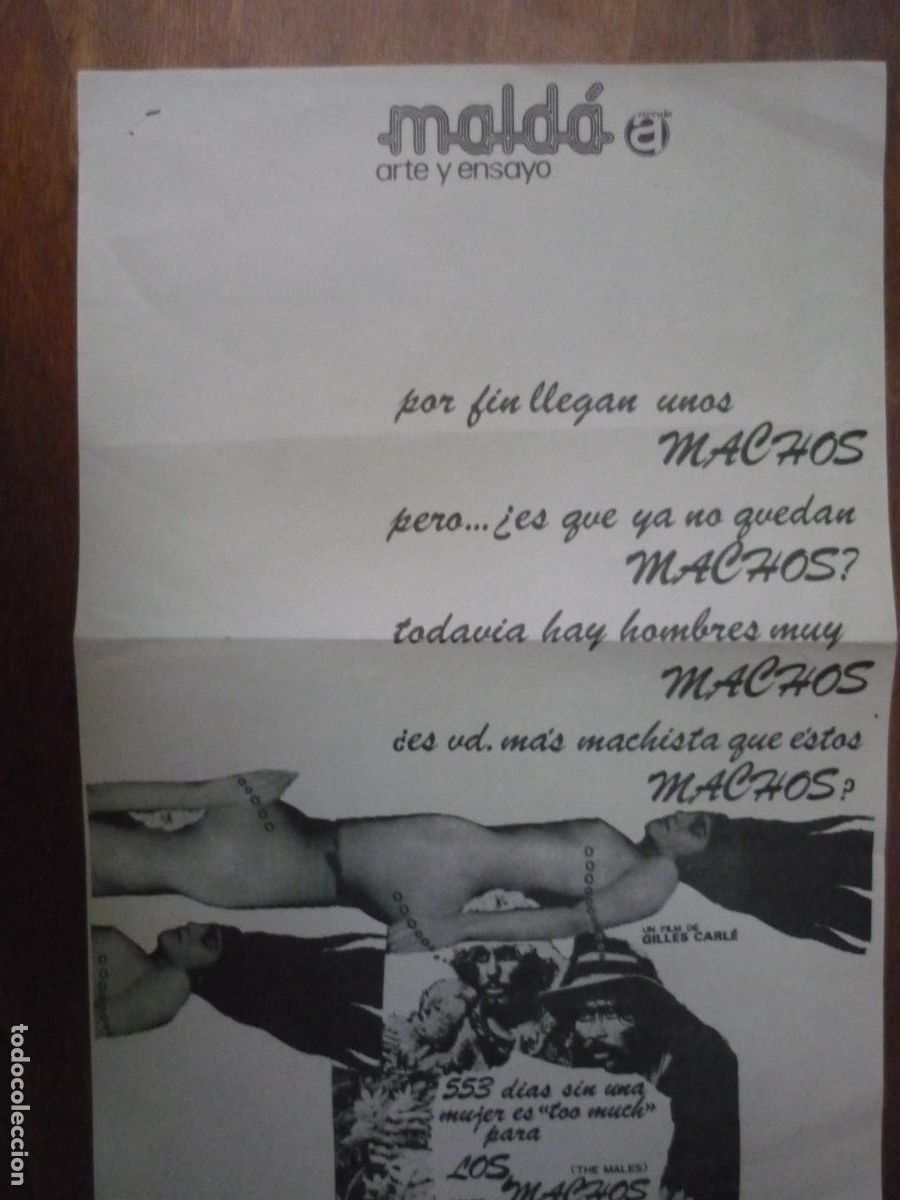 maldá
círculo
a
arte y ensayo
por fin llegan unos
MACHOS
pero... ¿es que ya no quedan
MACHOS?
todavia hay hombres muy
MACHOS
¿es vd. más machista que éstos
MACHOS?
UN FILM DE
GILLES CARLÉ
553 dias sin una
mujer es "too much"
para
LOS
(THE MALES)
MACHOS
todocoleccion